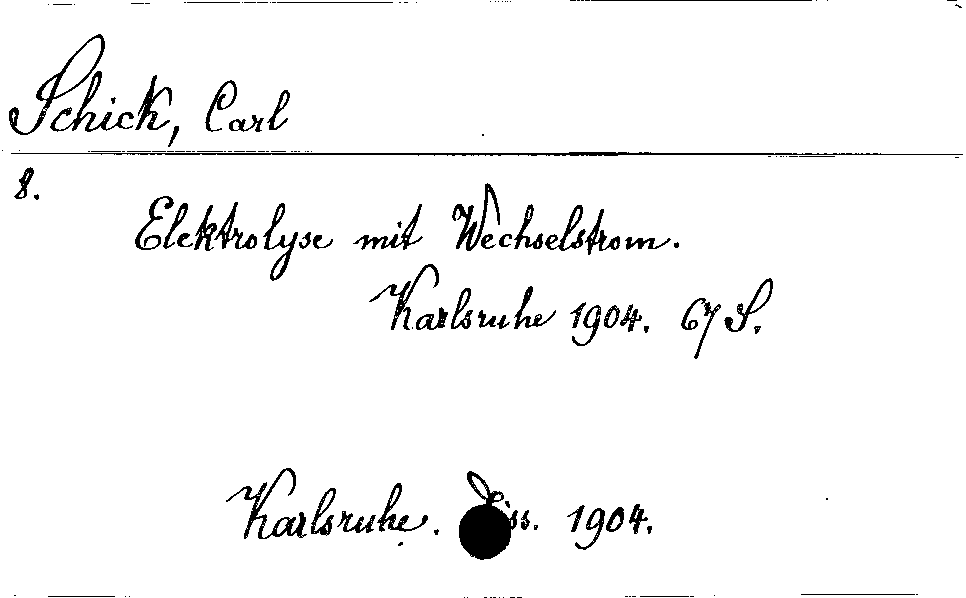 Schick, Carl
8.
Elektrolyse mit Wechselstrom.
Karlsruhe 1904. 67 S.
Karlsruhe. Diss. 1904.